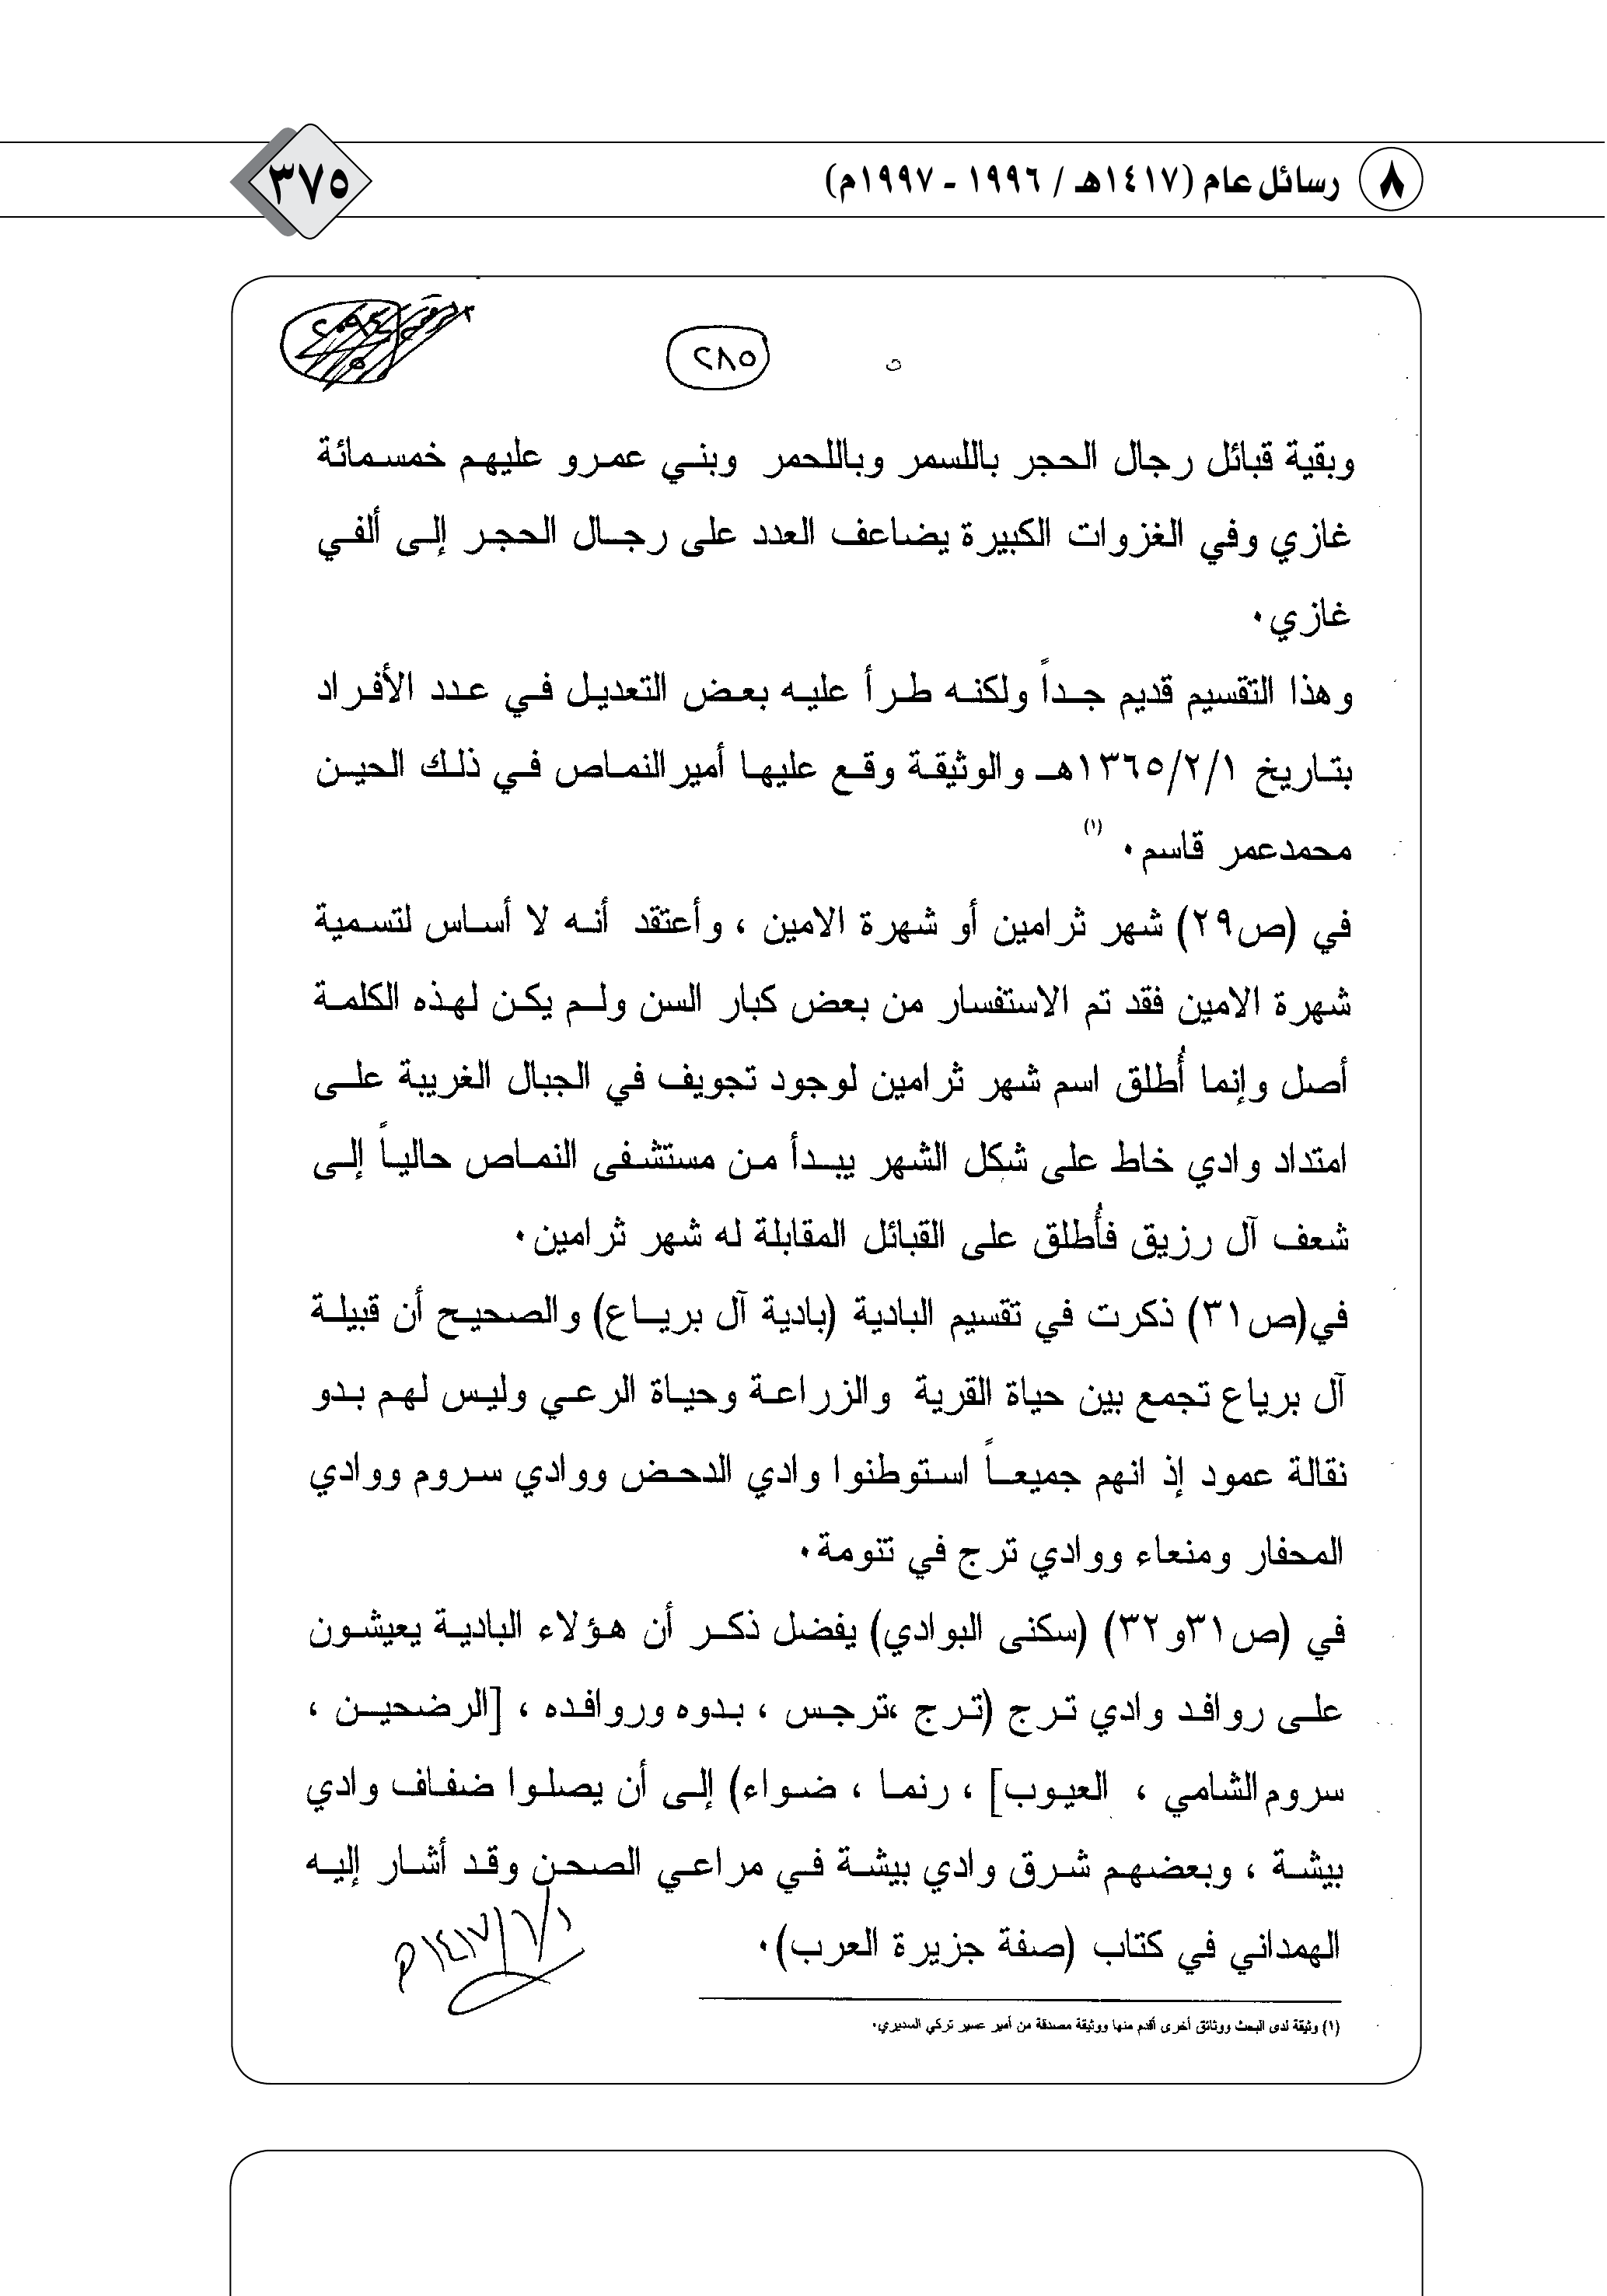 ٨ رسائل عام (١٤١٧هـ / ١٩٩٦ - ١٩٩٧م) ٣٧٥
٢٨٥
وبقية قبائل رجال الحجر باللسمر وباللحمر وبني عمرو عليهم خمسمائة
غازي وفي الغزوات الكبيرة يضاعف العدد على رجال الحجر إلى ألفي
غازي٠
وهذا التقسيم قديم جداً ولكنه طرأ عليه بعض التعديل في عدد الأفراد
بتاريخ ١٣٦٥/٢/١هـ والوثيقة وقع عليها أمير النماص في ذلك الحين
محمدعمر قاسم٠ (١)
في (ص٢٩) شهر ثرامين أو شهرة الامين ، وأعتقد أنه لا أساس لتسمية
شهرة الامين فقد تم الاستفسار من بعض كبار السن ولم يكن لهذه الكلمة
أصل وإنما أُطلق اسم شهر ثرامين لوجود تجويف في الجبال الغريبة على
امتداد وادي خاط على شكل الشهر يبدأ من مستشفى النماص حالياً إلى
شعف آل رزيق فأُطلق على القبائل المقابلة له شهر ثرامين٠
في(ص٣١) ذكرت في تقسيم البادية (بادية آل برياع) والصحيح أن قبيلة
آل برياع تجمع بين حياة القرية والزراعة وحياة الرعي وليس لهم بدو
نقالة عمود إذ انهم جميعاً استوطنوا وادي الدحض ووادي سروم ووادي
المحفار ومنعاء ووادي ترج في تنومة٠
في (ص٣١و٣٢) (سكنى البوادي) يفضل ذكر أن هؤلاء البادية يعيشون
على روافد وادي ترج (ترج ،ترجس ، بدوه وروافده ، [الرضحين ،
سروم الشامي ، العيوب] ، رنما ، ضواء) إلى أن يصلوا ضفاف وادي
بيشة ، وبعضهم شرق وادي بيشة في مراعي الصحن وقد أشار إليه
الهمداني في كتاب (صفة جزيرة العرب)٠
(١) وثيقة لدى البحث ووثائق أخرى أقدم منها ووثيقة مصدقة من أمير عسير تركي السديري٠